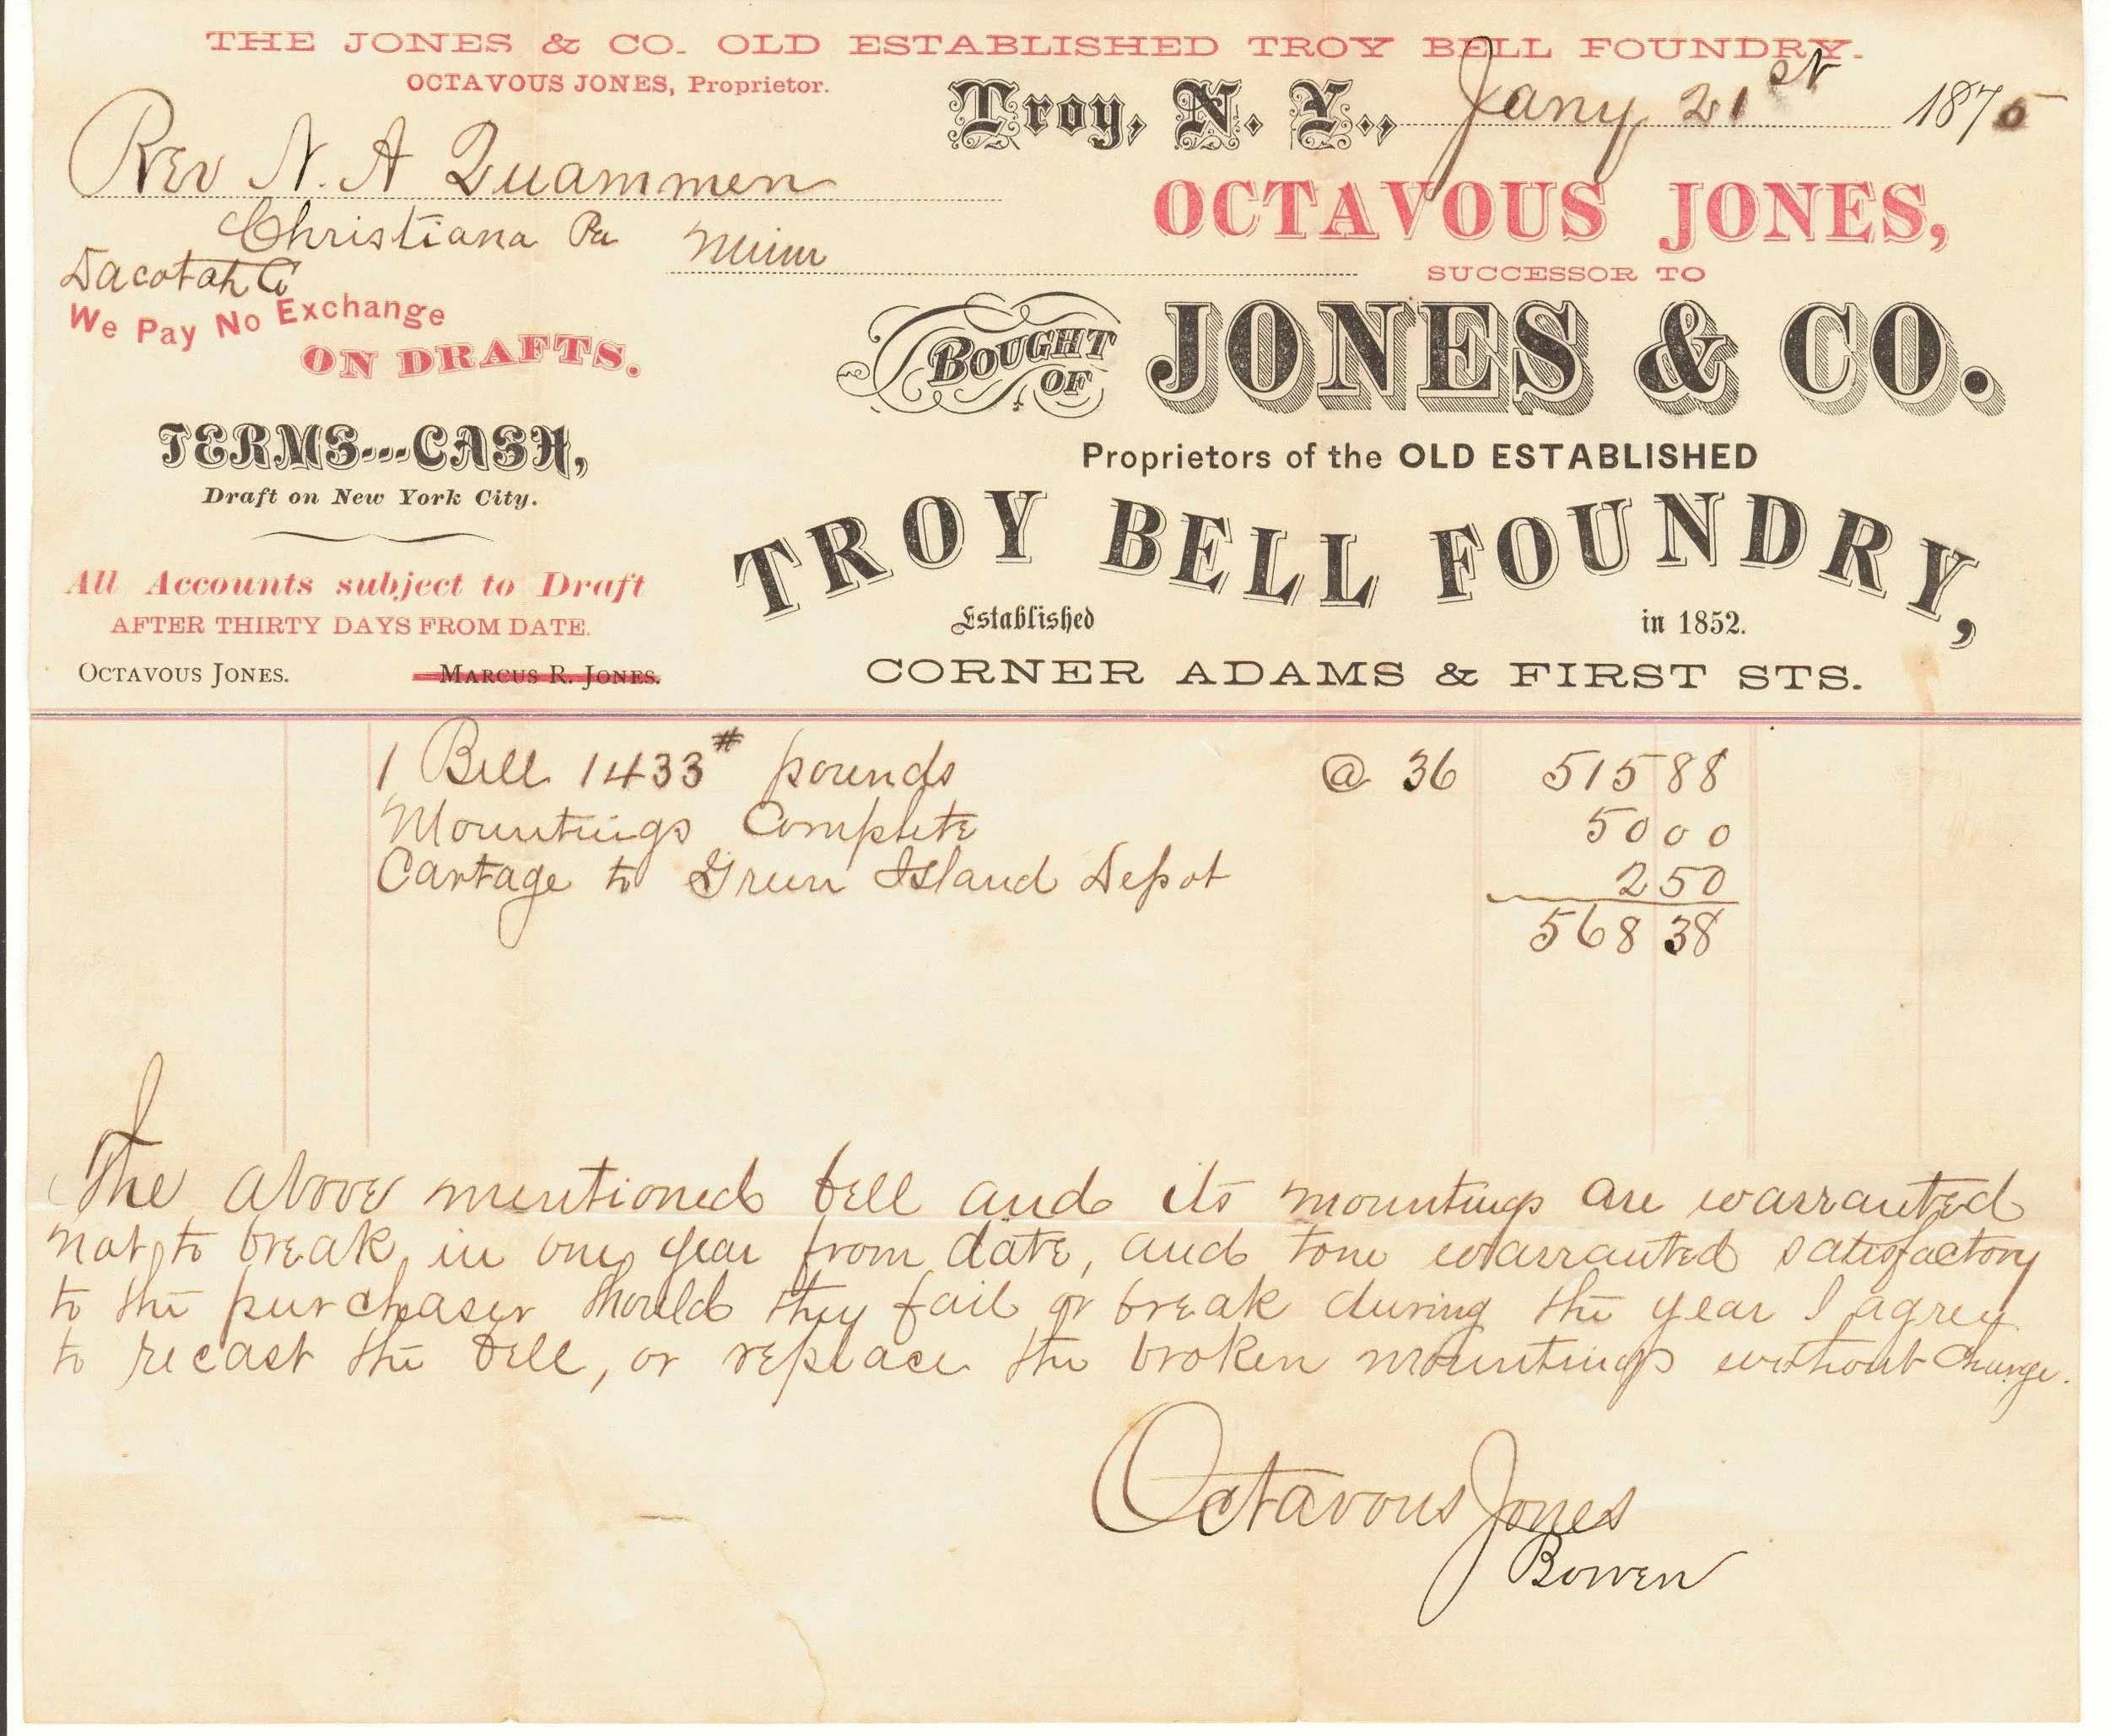 THE JONES & CO. OLD ESTABLISHED TROY BELL FOUNDRY.
OCTAVOUS JONES, Proprietor.
Troy, N. Y., Jany 21st 1875
Rev N. A Quammen
Christiana Pa Minn
Dacotah Co
OCTAVOUS JONES,
SUCCESSOR TO
We Pay No Exchange
ON DRAFTS.
BOUGHT OF JONES & CO.
TERMS---CASH,
Draft on New York City.
Proprietors of the OLD ESTABLISHED
TROY BELL FOUNDRY,
Established in 1852.
All Accounts subject to Draft
AFTER THIRTY DAYS FROM DATE.
OCTAVOUS JONES. MARCUS R. JONES.
CORNER ADAMS & FIRST STS.
1 Bell 1433# pounds @ 36 515 88
Mountings Complete 50 00
Cartage to Green Island Depot 2 50
568 38
The above mentioned bell and its mountings are warranted
not to break in one year from date, and tone warranted satisfactory
to the purchaser should they fail or break during the year I agree
to recast the bell, or replace the broken mountings without charge.
Octavous Jones
Bowen